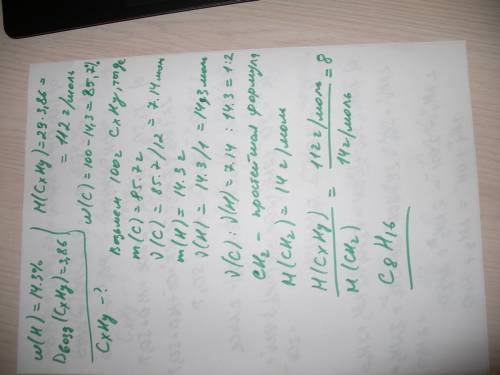 w(H) = 14.3%
Dвозд(CxHy) = 3,86
CxHy - ?
M(CxHy) = 29·3,86 =
= 112 г/моль
w(C) = 100 - 14,3 = 85,7%
Возьмем 100г CxHy, тогда
m(C) = 85.7г
ν(C) = 85.7/12 = 7,14 моль
m(H) = 14.3г
ν(H) = 14.3/1 = 14,3 моль
ν(C) : ν(H) = 7.14 : 14.3 = 1:2
CH2 - простейшая формула
M(CH2) = 14 г/моль
M(CxHy) / M(CH2) = 112 г/моль / 14 г/моль = 8
C8H16